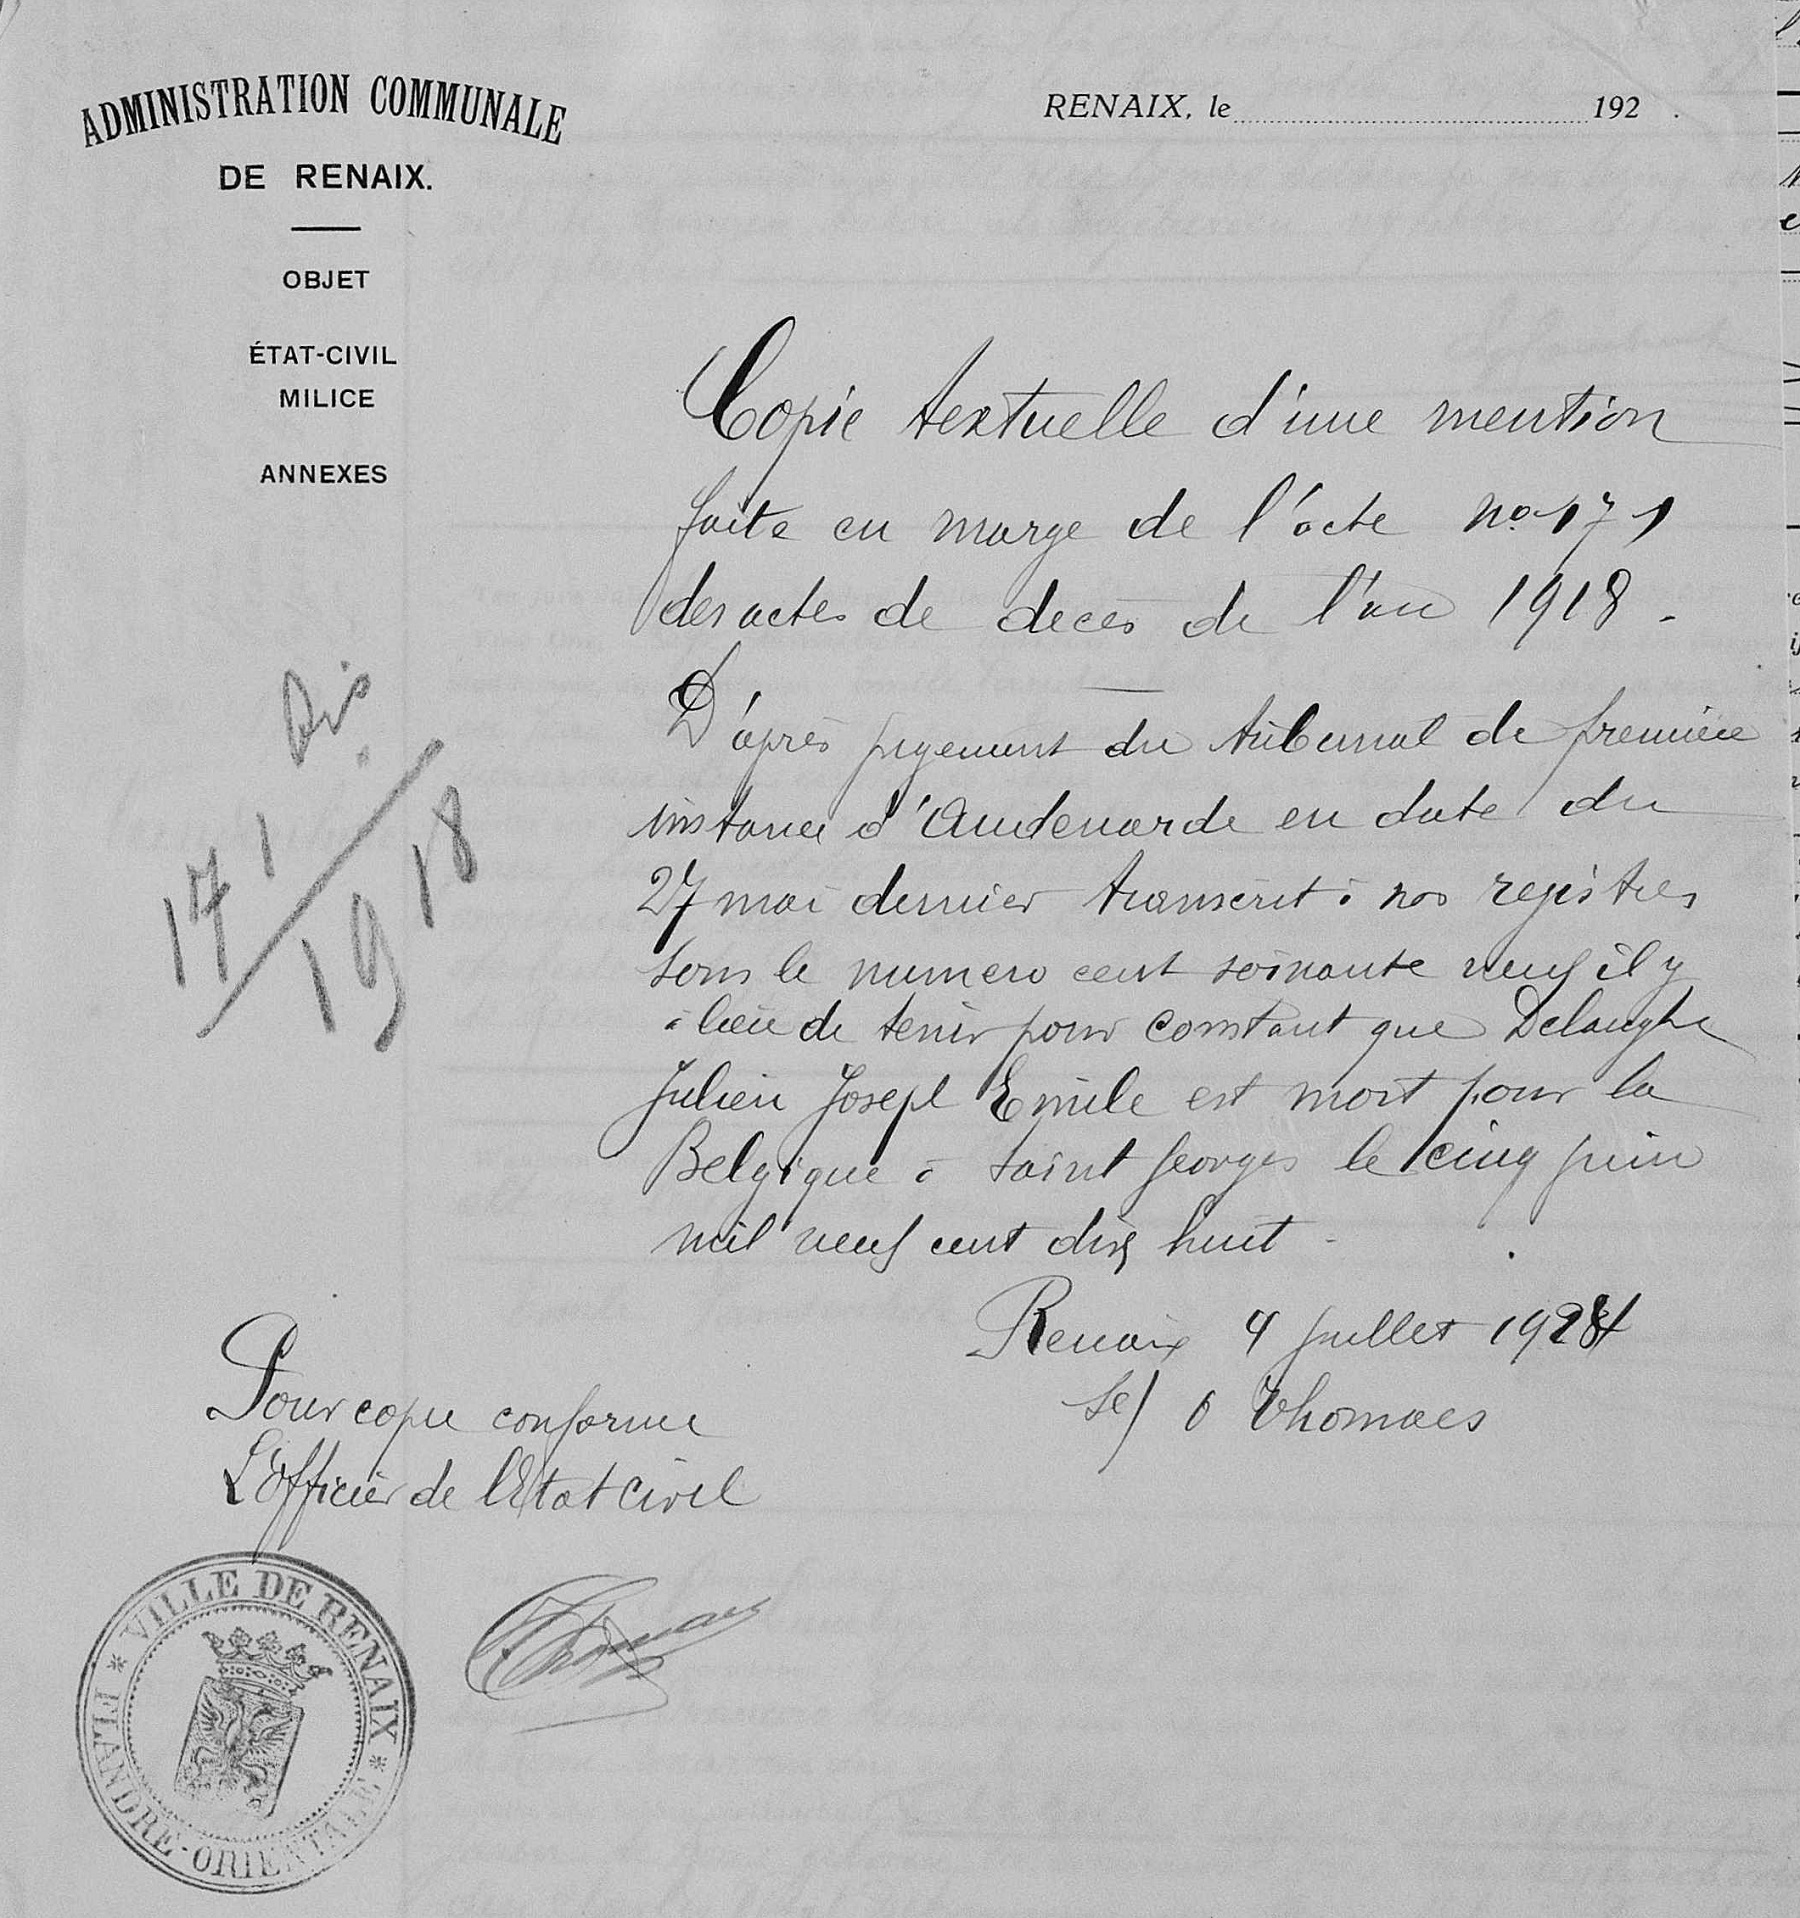 ADMINISTRATION COMMUNALE
DE RENAIX.
OBJET
ÉTAT-CIVIL
MILICE
ANNEXES
RENAIX, le 192 .
Copie textuelle d'une mention
faite en marge de l'acte No 171
des actes de décès de l'an 1918 -
D'après jugement du tribunal de première
instance d'Audenarde en date du
27 mai dernier transcrit à nos registres
sous le numero cent soixante neuf il y
à lieu de tenir pour constant que Delanghe
Julien Joseph Emile est mort pour la
Belgique à Saint Georges le cinq juin
mil neuf cent dix huit -
Renaix 4 juillet 1924
se/ O Thomaes
171
1918
Pour copie conforme
L'officier de l'Etat Civil
* VILLE DE RENAIX * FLANDRE-ORIENTALE